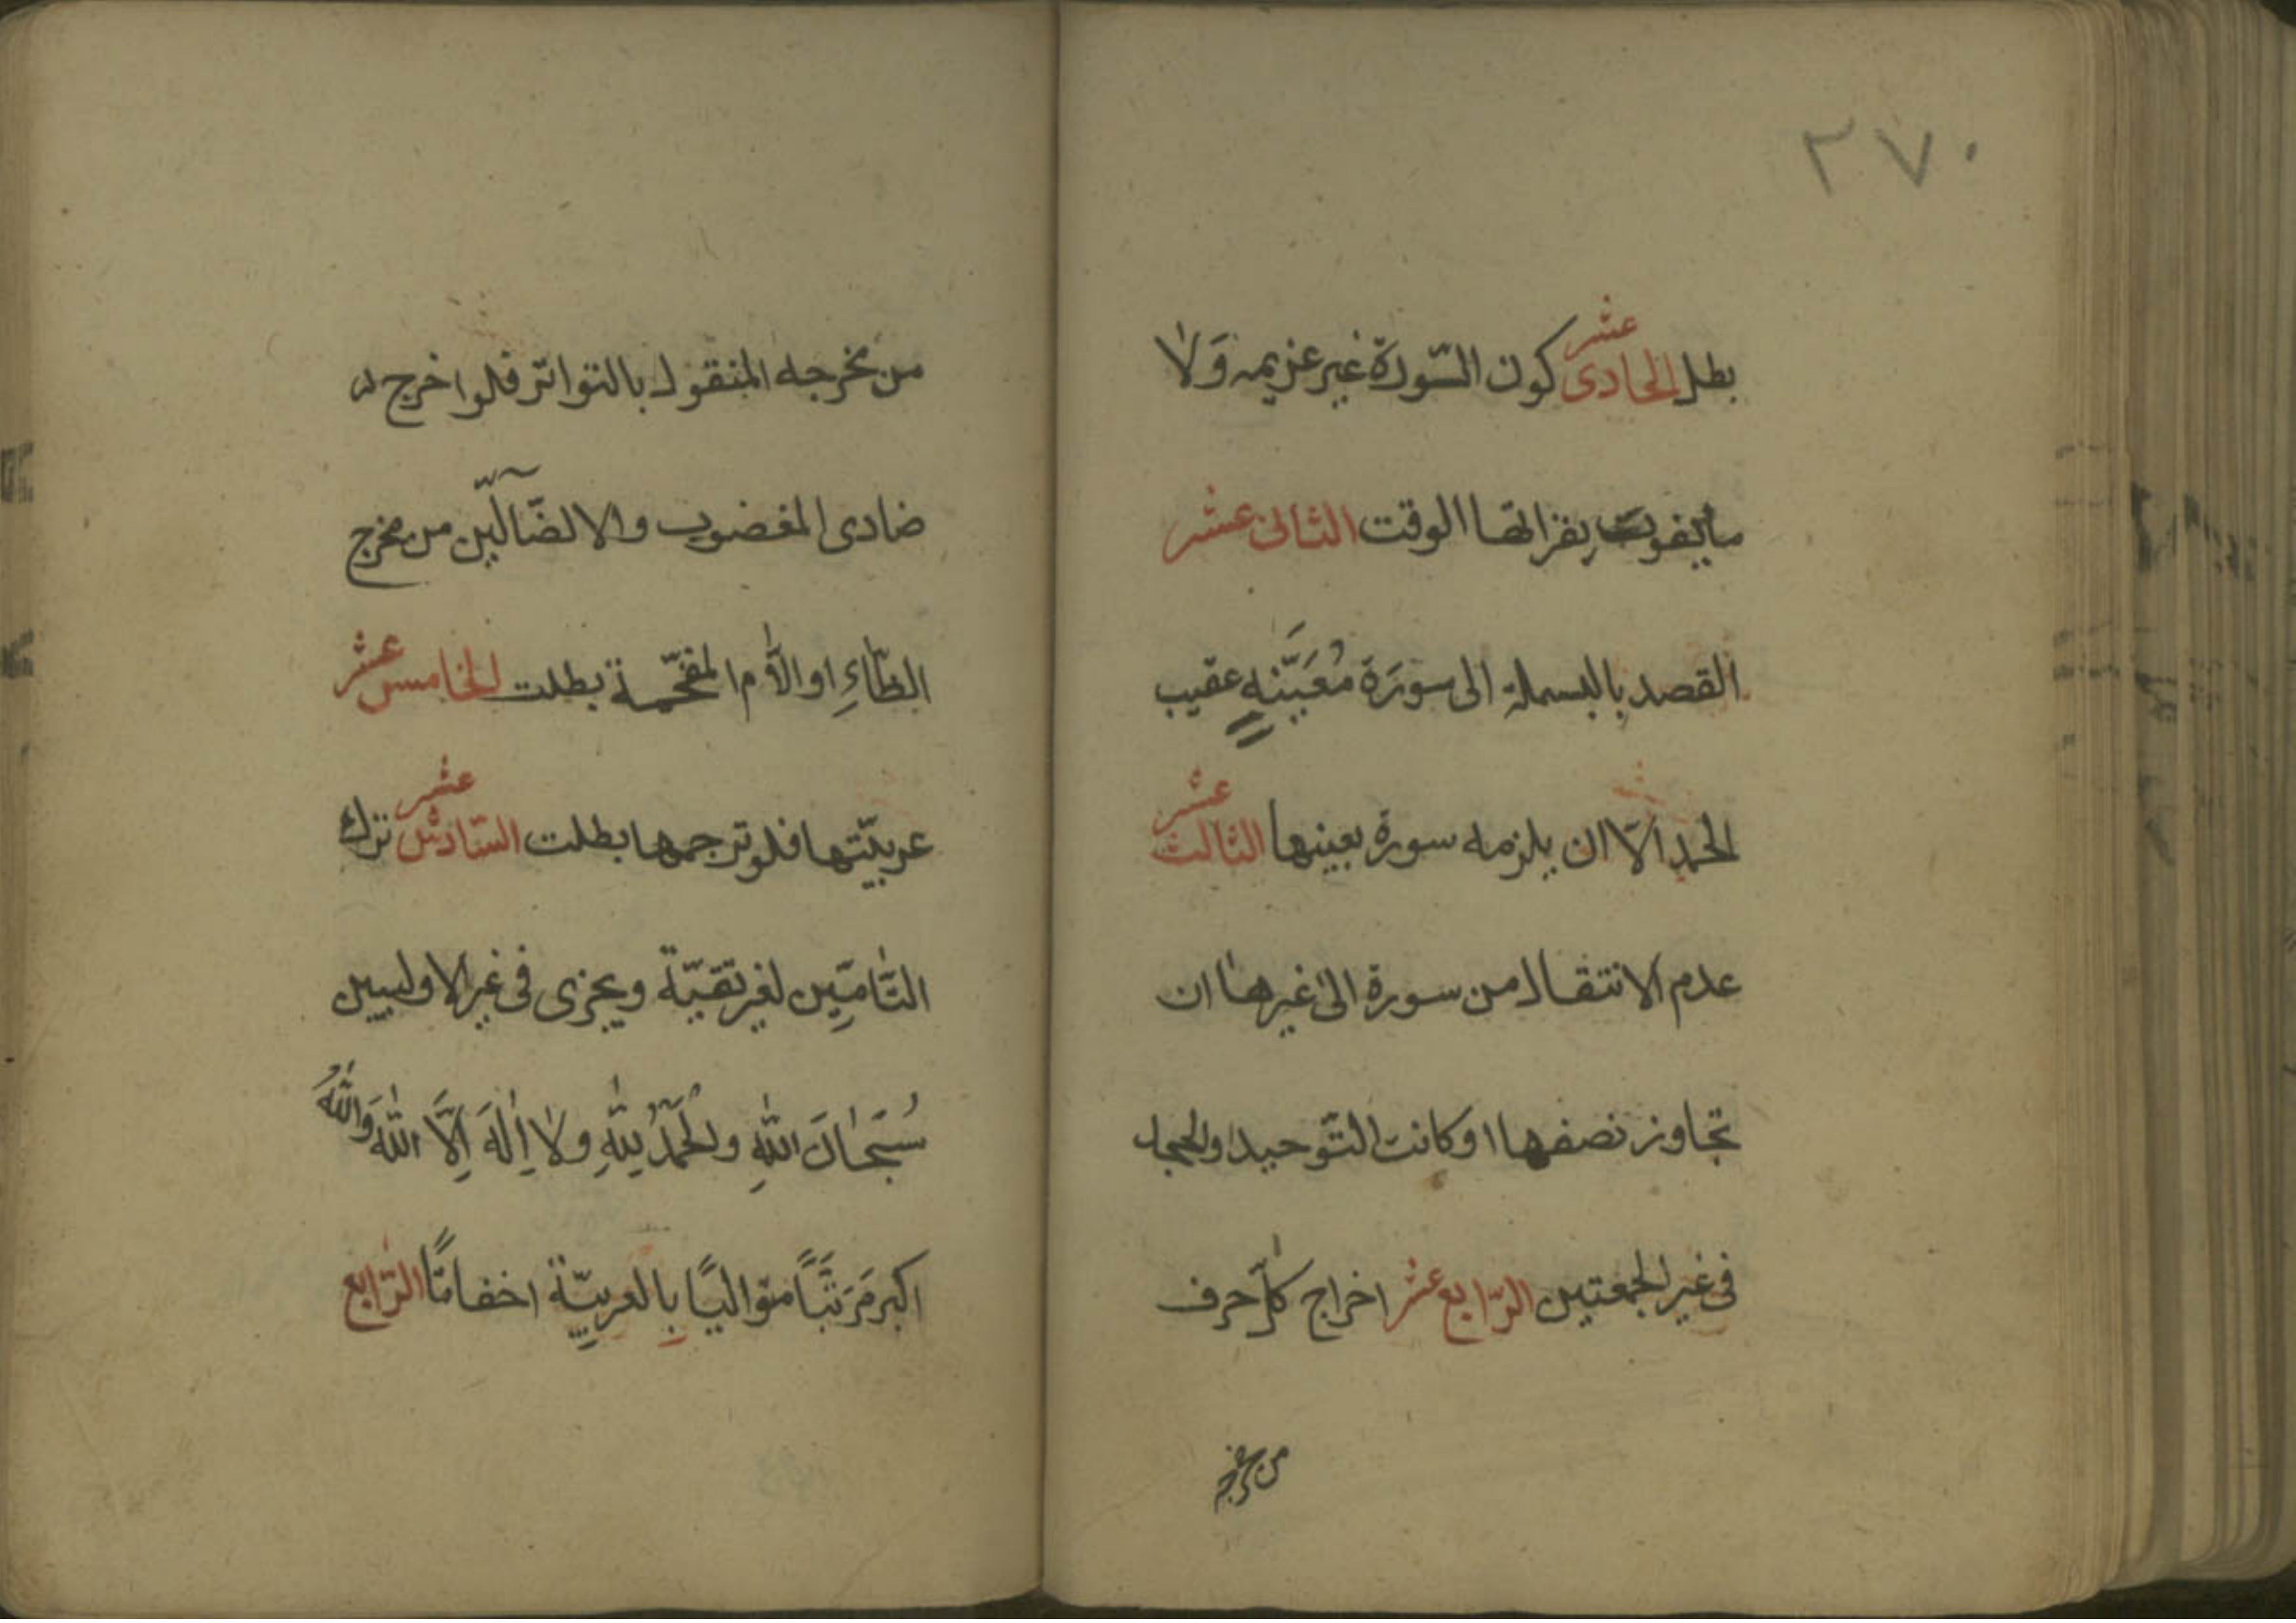 ٢٧٠
بطل الحادى عشر كون السّورة غير عزيمه وَلا
ما يفوت بقرائتها الوقت الثانى عشر
القصد بالبسملة الى سورَة مُعَيَّنةٍ عقيب
الحمد الّا ان يلزمه سورة بعينها الثالث عشر
عدم الانتقال من سورة الى غيرها ان
تجاوز نصفها او كانت التّوحيد والجحد
فى غير الجمعتين الرّابع عشر اخراج كلّ حرف
من مخرجه
من مخرجه المنقول بالتواتر فلو اخرج
ضادى المغضوب ولا الضّآلّين من مخرج
الظّاءِ او الّام المفخّمة بطلت الخامس عشر
عربيّتها فلو ترجمها بطلت السّادس عشر ترك
التّامّين لغير تقيّة ويجزى فى غير الاوليين
سُبحانَ اللّهِ والحَمدُ لِلّهِ ولا اِلهَ اِلَّا اللّه وَاللّهُ
اكبر مَرَتَّبًا متواليًا بالعربيّة اخفاتًا الرّابع